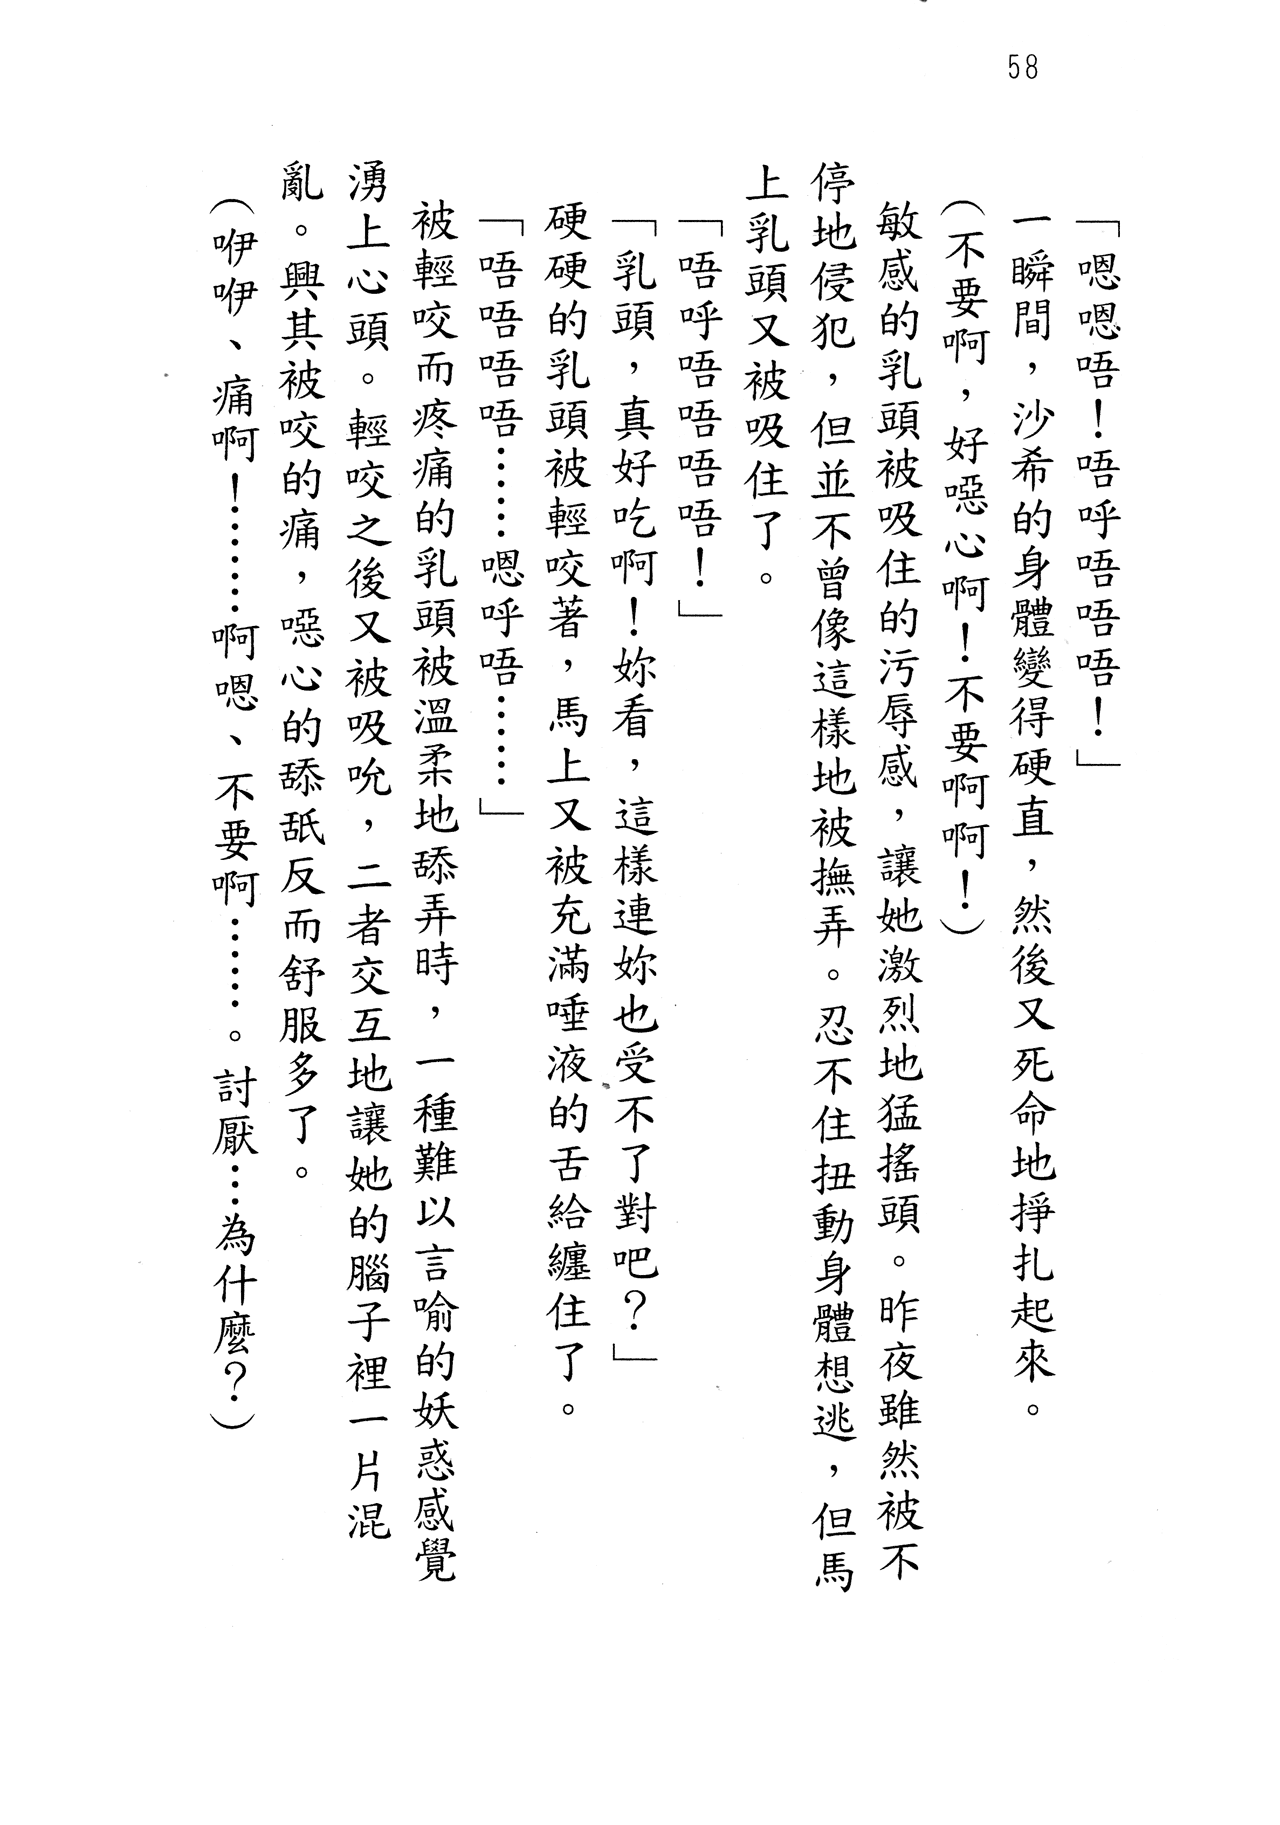 58
「嗯嗯唔！唔呼唔唔唔！」
一瞬間，沙希的身體變得硬直，然後又死命地掙扎起來。
（不要啊，好噁心啊！不要啊啊！）
敏感的乳頭被吸住的污辱感，讓她激烈地猛搖頭。昨夜雖然被不
停地侵犯，但並不曾像這樣地被撫弄。忍不住扭動身體想逃，但馬
上乳頭又被吸住了。
「唔呼唔唔唔唔！」
「乳頭，真好吃啊！妳看，這樣連妳也受不了對吧？」
硬硬的乳頭被輕咬著，馬上又被充滿唾液的舌給纏住了。
「唔唔唔唔……嗯呼唔……」
被輕咬而疼痛的乳頭被溫柔地舔弄時，一種難以言喻的妖惑感覺
湧上心頭。輕咬之後又被吸吮，二者交互地讓她的腦子裡一片混
亂。興其被咬的痛，噁心的舔舐反而舒服多了。
（咿咿、痛啊！……啊嗯、不要啊……。討厭…為什麼？）